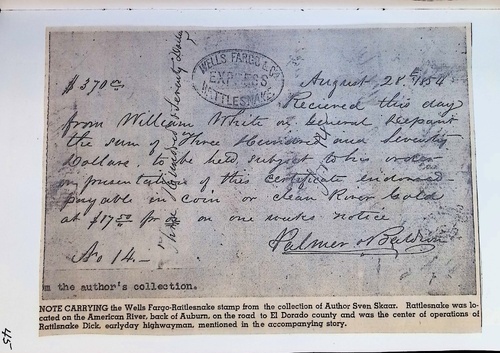 $370.00
WELLS FARGO & CO
EXPRESS
RATTLESNAKE
August 28th 1854
Recieved this day
from William White on General Deposit
the sum of Three Hundred and Seventy
Dollars, to be held subject to his order
on presentation of this Certificate endorsed
payable in coin or clean River Gold
at $17 50 pr oz on one weeks notice
Three Hundred & Seventy Dollars
No 14
Palmer & Baldwin
m the author's collection.
NOTE CARRYING the Wells Fargo-Raitlesnake stamp from the collection of Author Sven Skaar. Rattlesnake was lo-
cated on the American River, back of Auburn, on the road to El Dorado county and was the center of operations of
Rattlsnake Dick, earlyday highwayman, mentioned in the accompanying story.
45